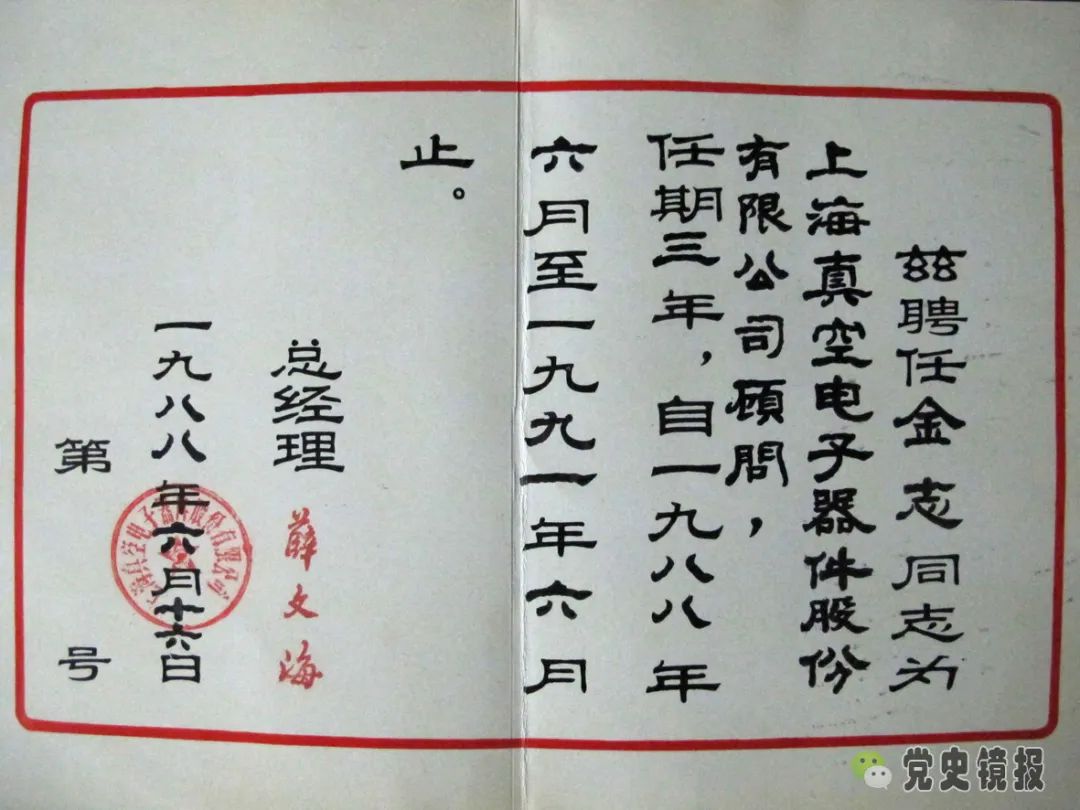 兹聘任金志同志为
上海真空电子器件股份
有限公司顾问，
任期三年，自一九八八年
六月至一九九一年六月
止。
总经理 薛文海
一九八八年六月十六日
第 号
上海真空电子器件股份有限公司
党史镜报